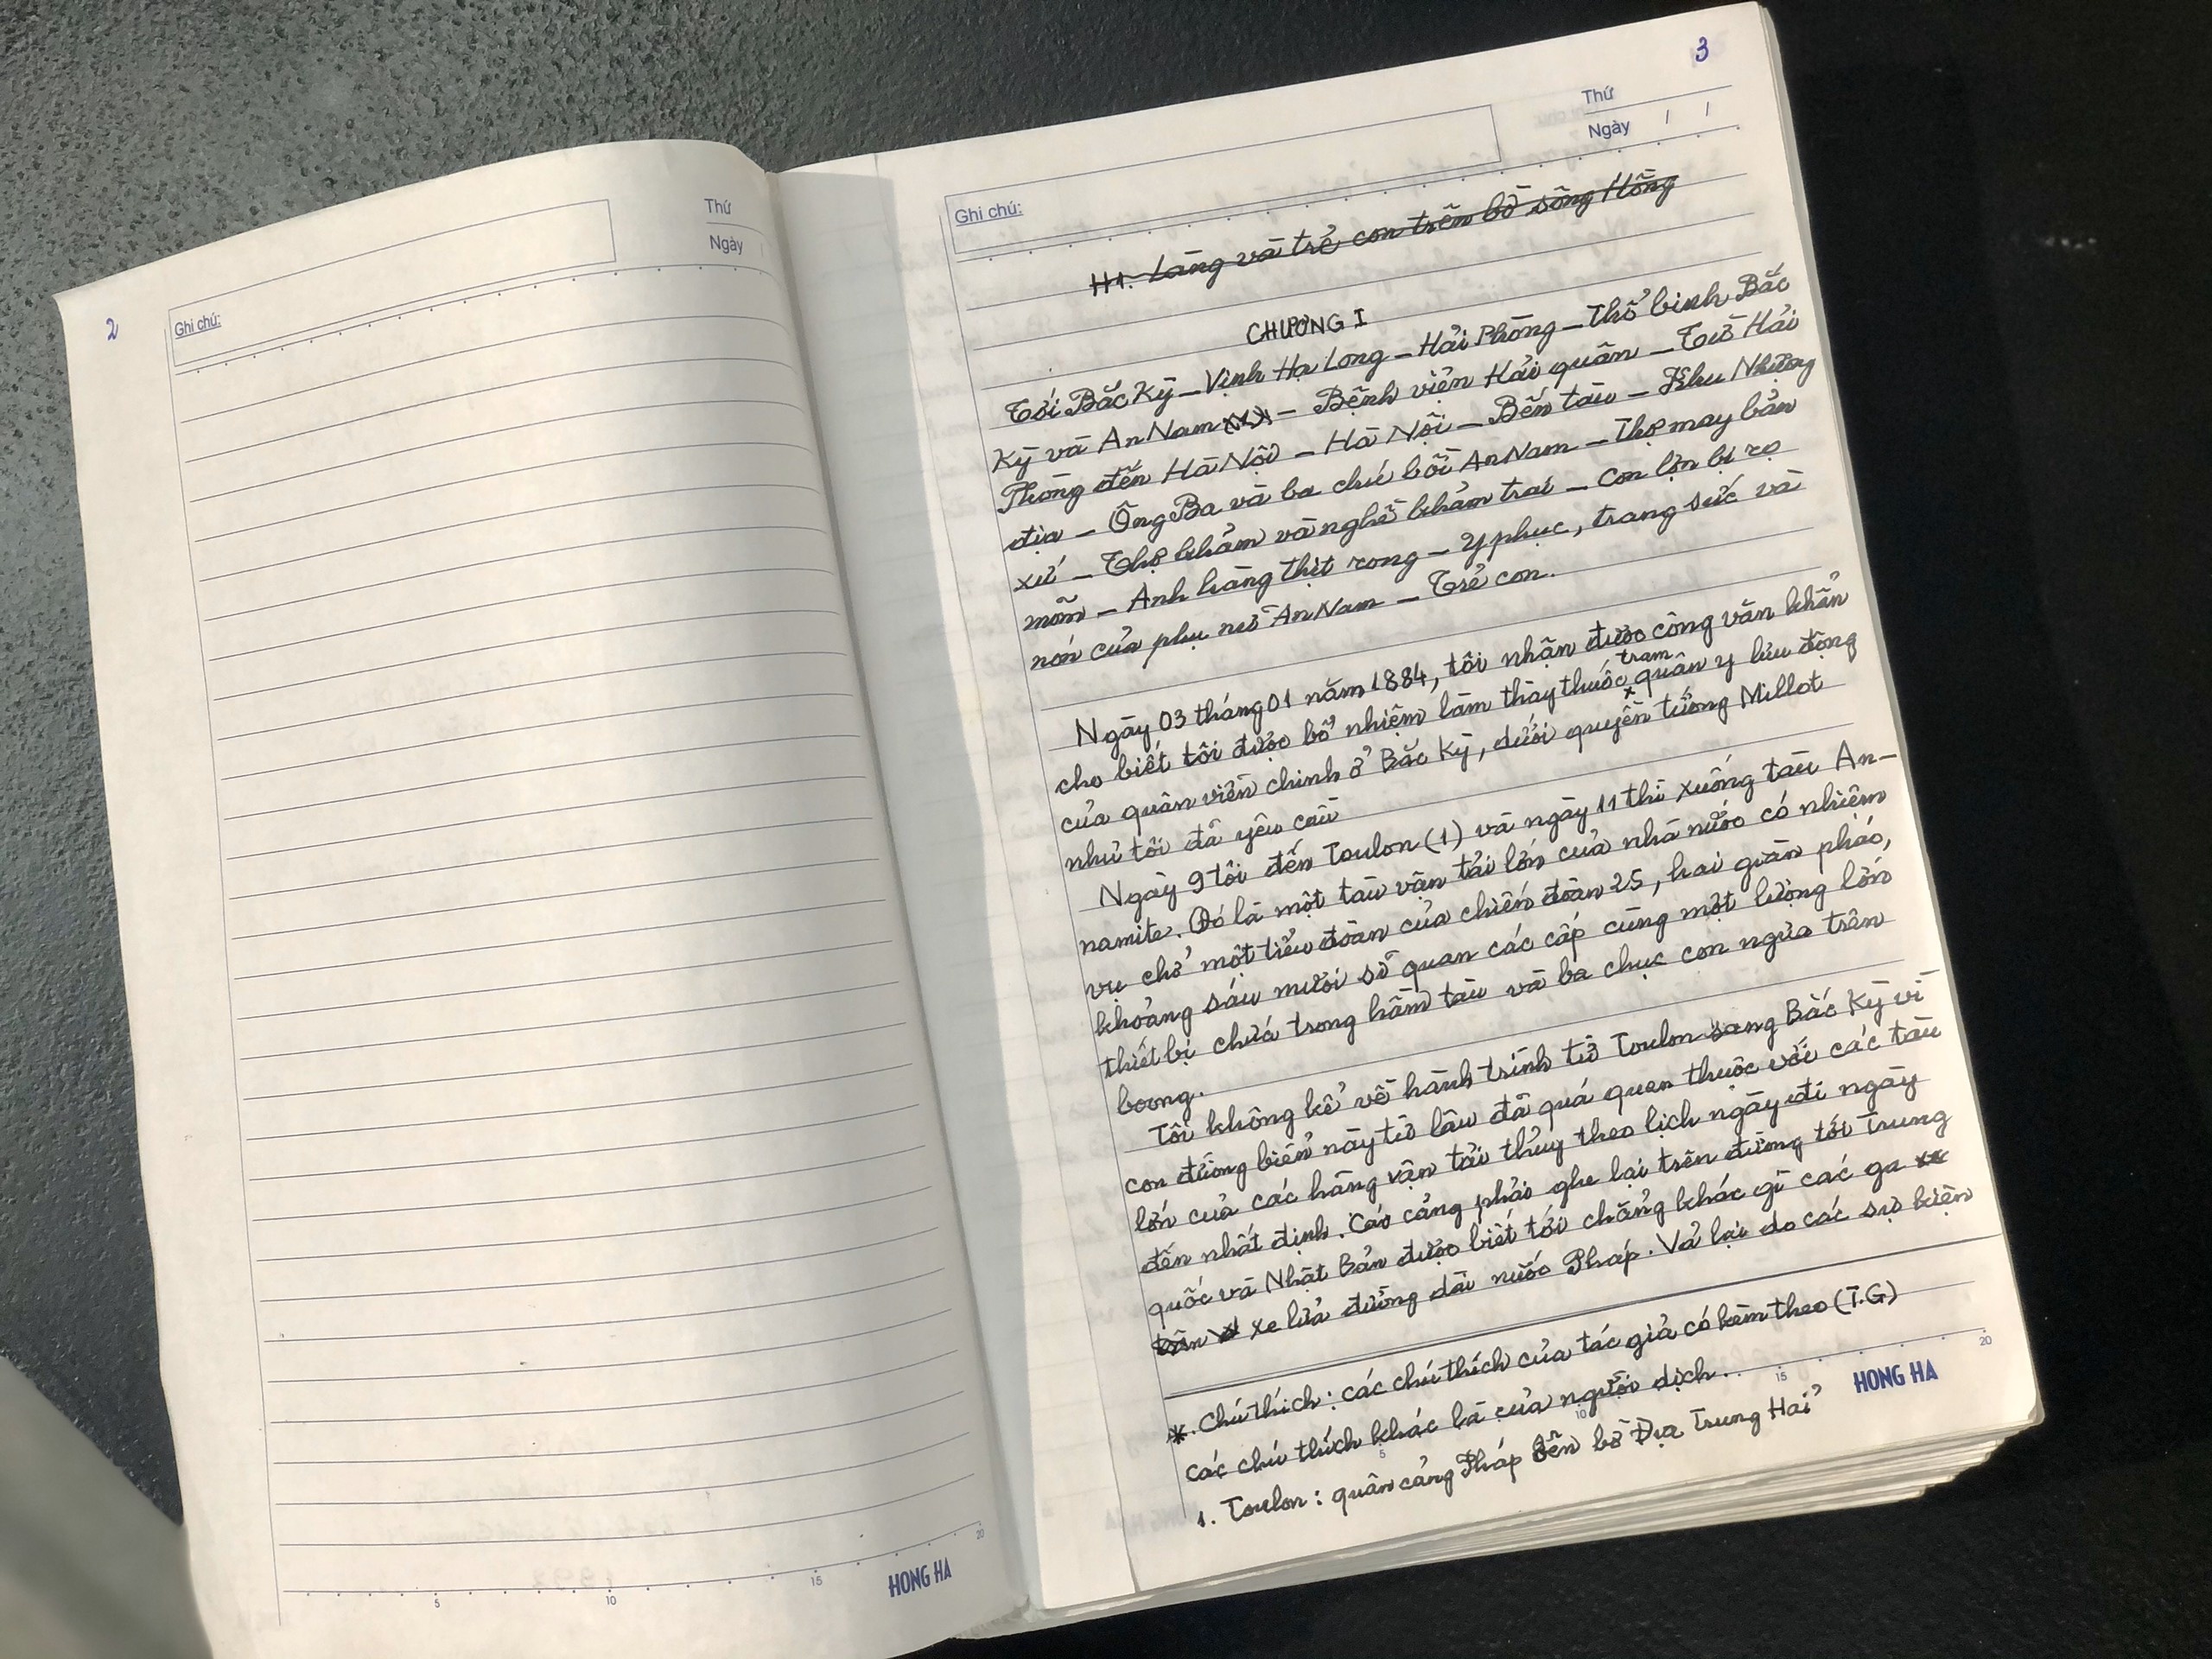 2
Thứ
Ngày
Ghi chú:
5 10 15 20
HONG HA
3
Thứ
Ngày / /
Ghi chú:
H1. Làng và trẻ con trên bờ sông Hồng
CHƯƠNG I
Tới Bắc Kỳ – Vịnh Hạ Long – Hải Phòng – Thổ binh Bắc
Kỳ và An Nam – Bệnh viện Hải quân – Từ Hải
Phòng đến Hà Nội – Hà Nội – Bến tàu – Khu Nhượng
địa – Ông Ba và ba chú bồi An Nam – Thợ may bản
xứ – Thợ khảm và nghề khảm trai – Con lợn bị rọ
mõm – Anh hàng thịt rong – Y phục, trang sức và
nón của phụ nữ An Nam – Trẻ con.
Ngày 03 tháng 01 năm 1884, tôi nhận được công văn khẩn
trạm
cho biết tôi được bổ nhiệm làm thày thuốc x quân y lưu động
của quân viễn chinh ở Bắc Kỳ, dưới quyền tướng Millot
như tôi đã yêu cầu
Ngày 9 tôi đến Toulon (1) và ngày 11 thì xuống tàu An-
namite. Đó là một tàu vận tải lớn của nhà nước có nhiệm
vụ chở một tiểu đoàn của chiến đoàn 25, hai giàn pháo,
khoảng sáu mươi sĩ quan các cấp cùng một lượng lớn
thiết bị chứa trong hầm tàu và ba chục con ngựa trên
boong.
Tôi không kể về hành trình từ Toulon sang Bắc Kỳ vì
con đường biển này từ lâu đã quá quen thuộc với các tàu
lớn của các hãng vận tải thủy theo lịch ngày đi ngày
đến nhất định. Các cảng phải ghe lại trên đường tới Trung
quốc và Nhật Bản được biết tới chẳng khác gì các ga
xe lửa đường dài nước Pháp. Vả lại do các sự kiện
*. Chú thích: các chú thích của tác giả có kèm theo (T.G)
các chú thích khác là của người dịch.
1. Toulon: quân cảng Pháp bên bờ Địa Trung Hải
5 10 15 20
HONG HA